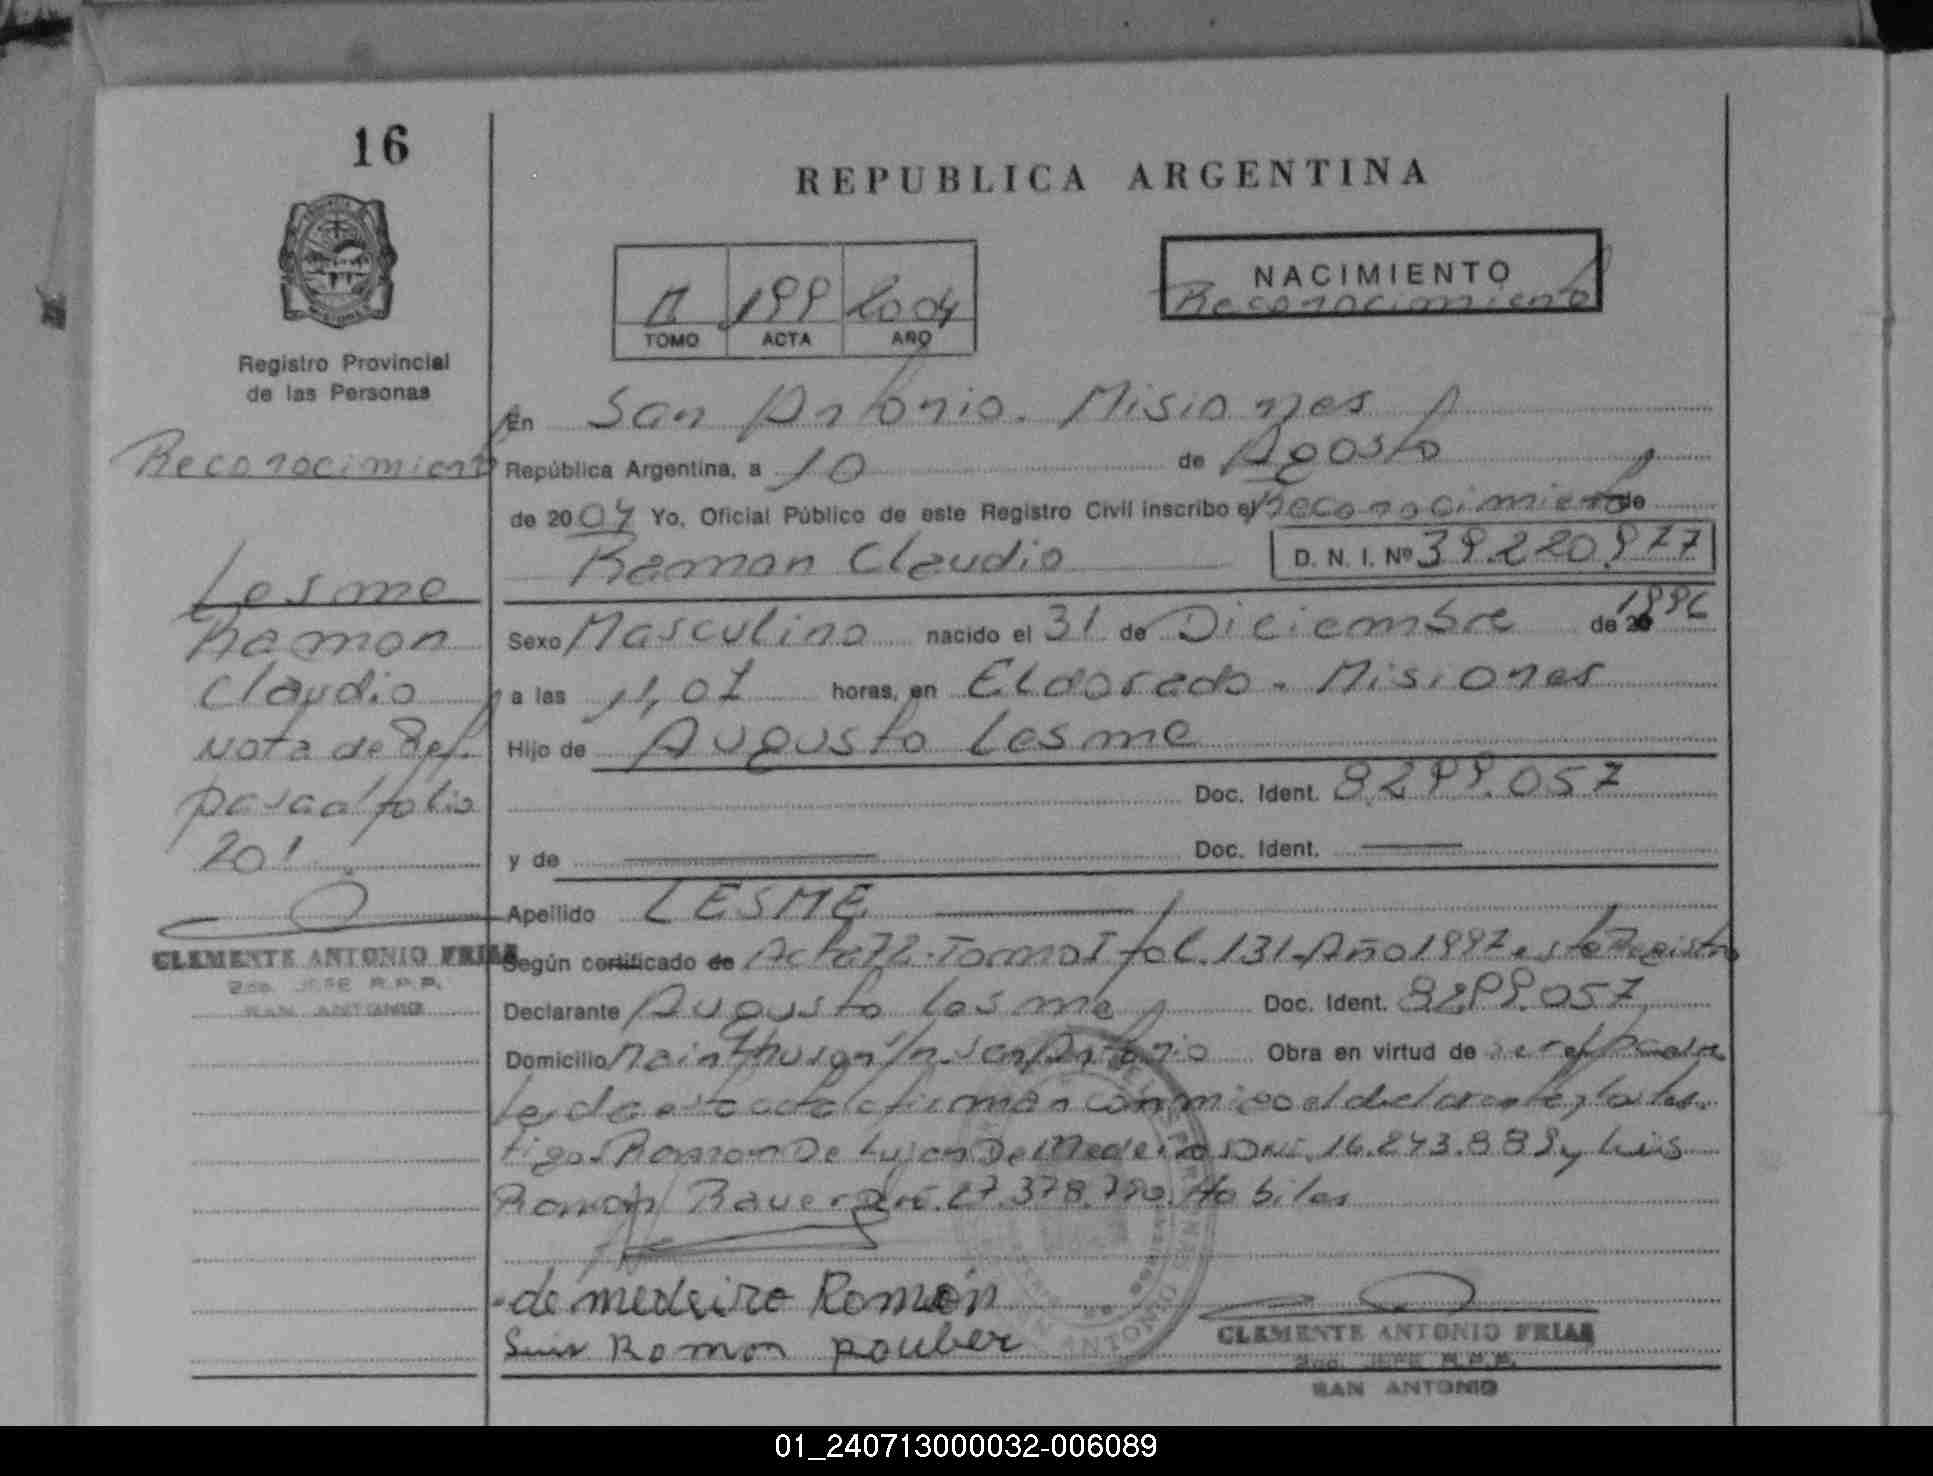 16
REPUBLICA ARGENTINA
II 199 2004
TOMO ACTA AÑO
NACIMIENTO
Reconocimiento
Registro Provincial
de las Personas
Reconocimiento
Lesme
Ramon
Claudio
Nota de Ref.
pasa al folio
201
CLEMENTE ANTONIO FRIAS
2do. JEFE R.P.P.
SAN ANTONIO
En San Antonio. Misiones
República Argentina, a 10 de Agosto
de 2004 Yo, Oficial Público de este Registro Civil inscribo el Reconocimiento de
Ramon Claudio D. N. I. Nº 39.220.977
Sexo Masculino nacido el 31 de Diciembre de 1996
a las 11,07 horas, en Eldorado - Misiones
Hijo de Augusto Lesme
Doc. Ident. 8.299.057
y de Doc. Ident.
Apellido LESME
Según certificado de Acta 72 - Tomo I fol. 131 - Año 1997 este Registro
Declarante Augusto Lesme Doc. Ident. 8299.057
Domicilio s/n San Antonio Obra en virtud de ser el padre
Leida esta acta la firman conmigo el declarante y los tes-
tigos Ramon De Lujan De Medeiro DNI. 16.843.889 y Luis
Ramon DNI. 27.378.790. Habiles
de medeiro Ramón
Luis Ramon pauber
CLEMENTE ANTONIO FRIAS
2do. JEFE R.P.P.
SAN ANTONIO
01_240713000032-006089